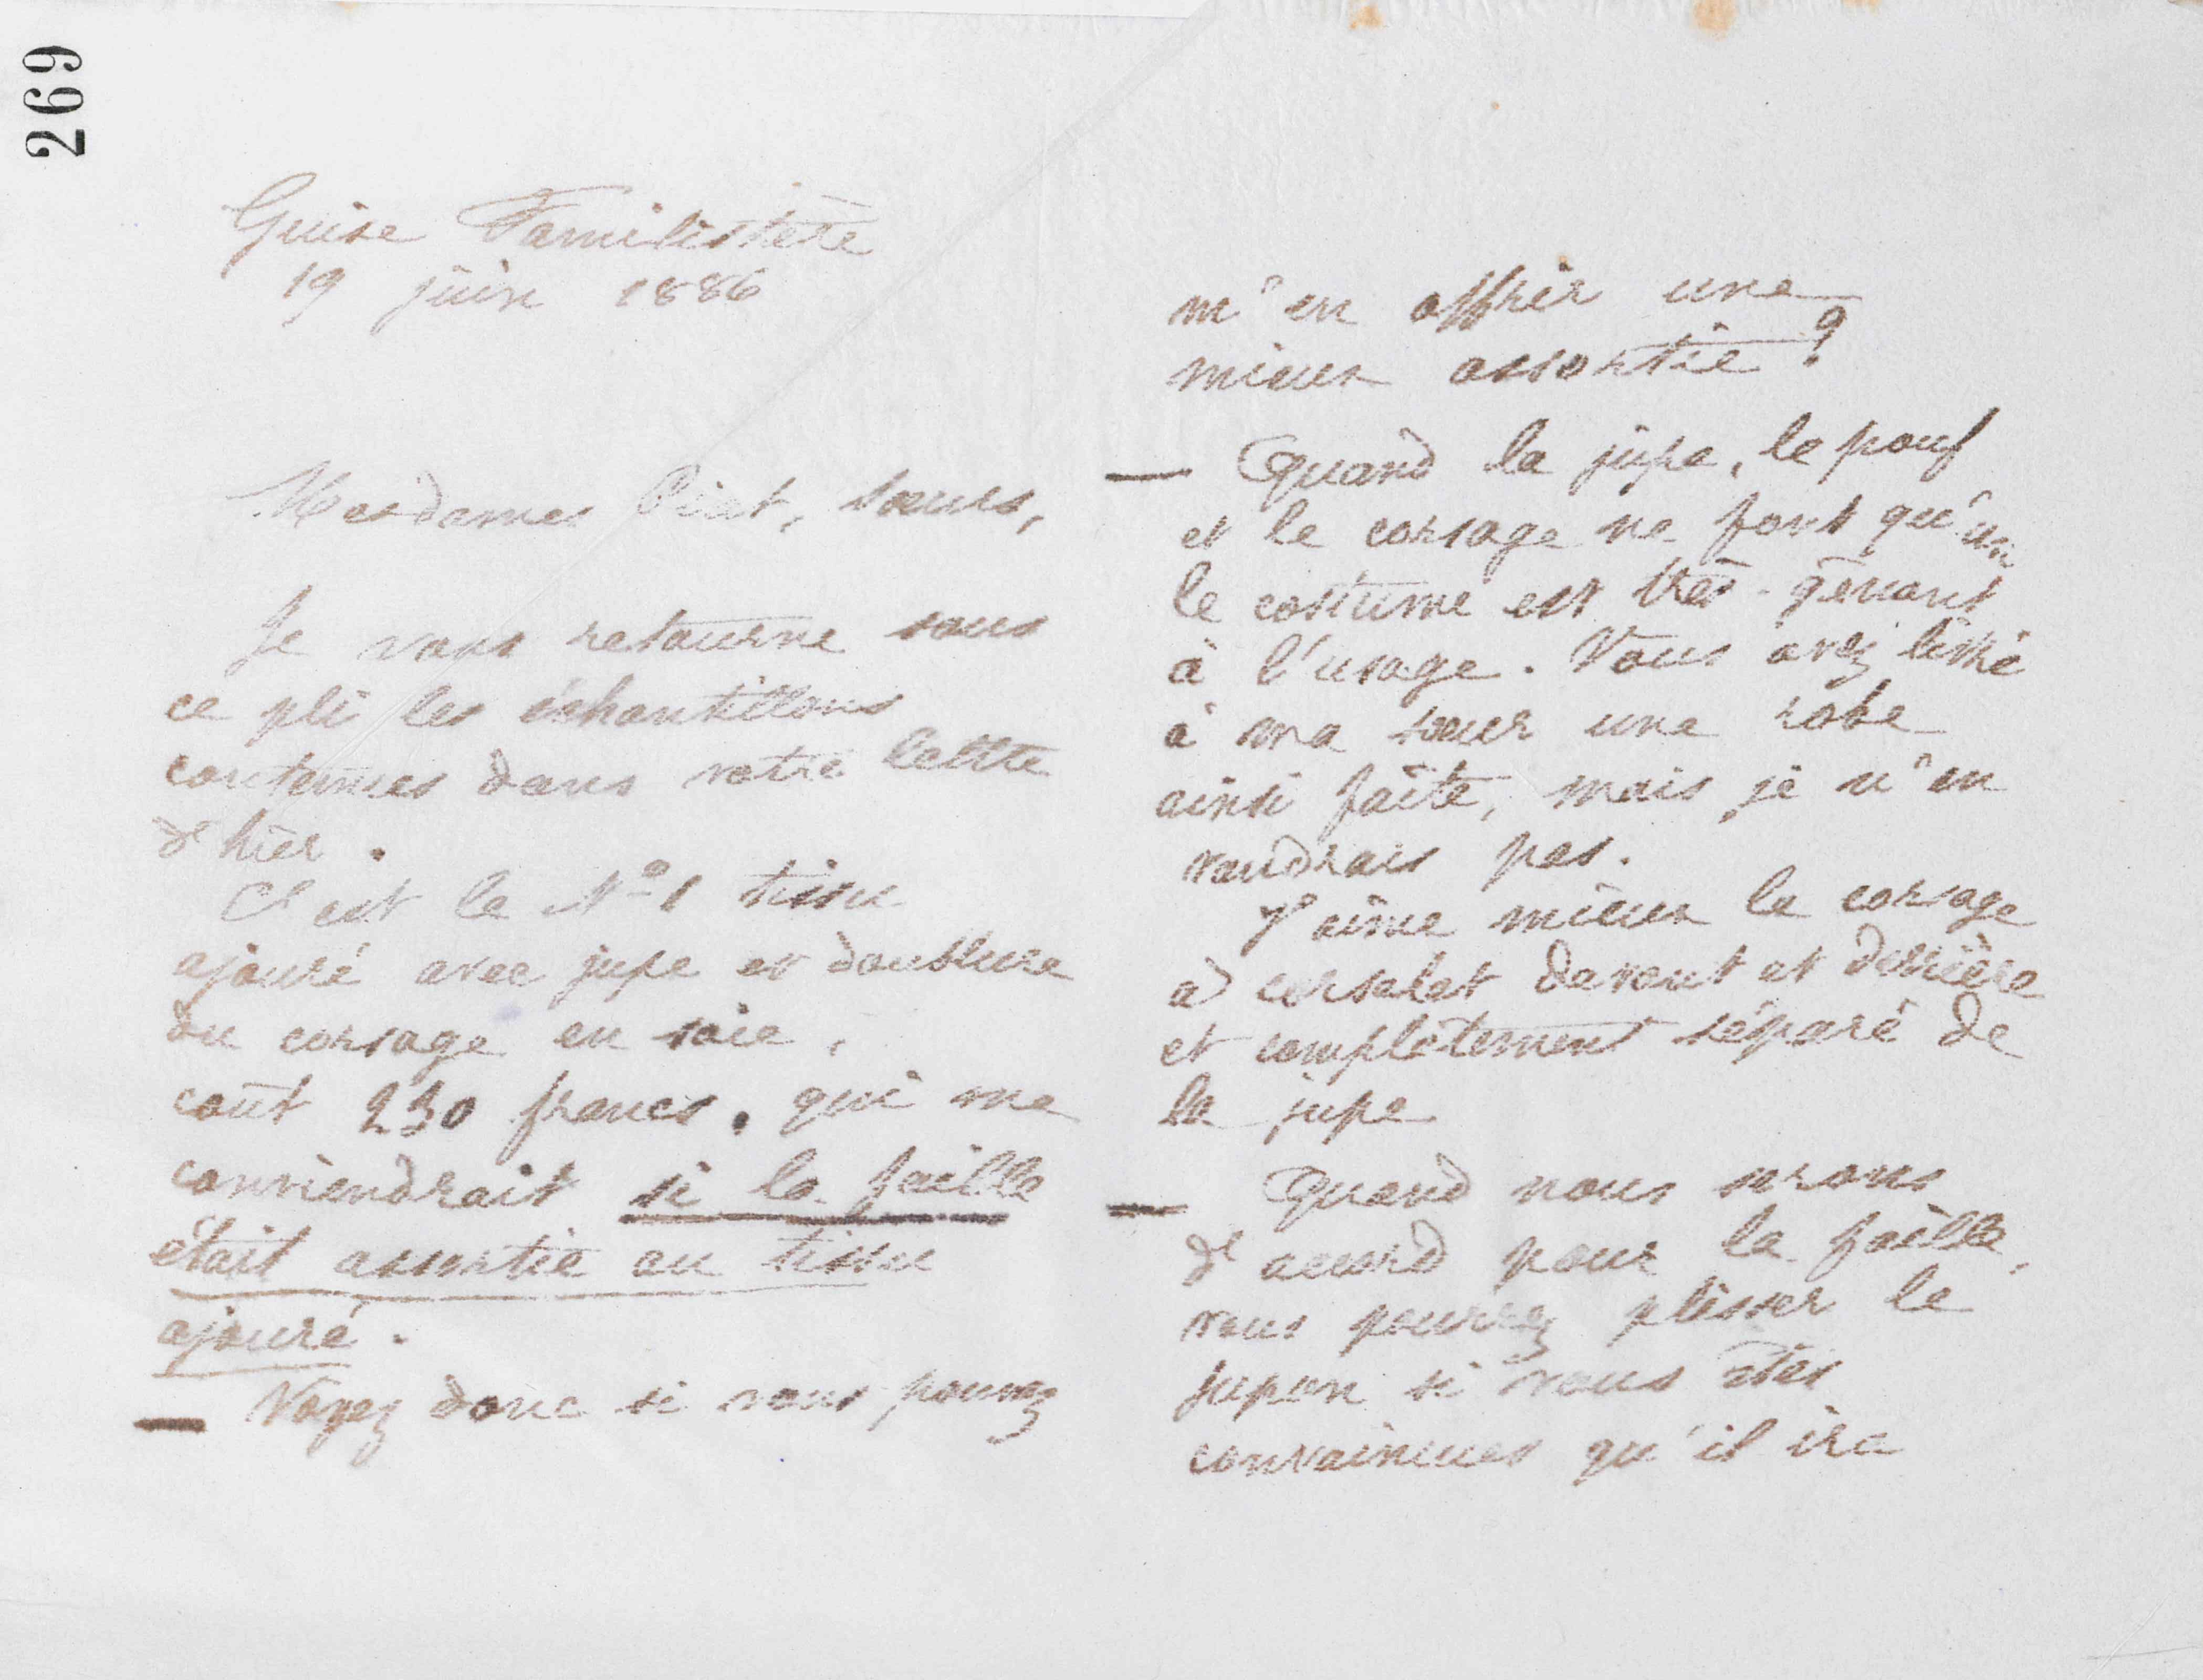 269
Guise Familistère
19 juin 1886
Mesdames Piat, sœurs,
Je vous retourne sous
ce pli les échantillons
contenues dans votre lettre
d'hier.
C'est le Nº 1 tissu
ajouré avec jupe et doublure
du corsage en soie,
coût 230 francs, qui me
conviendrait si la faille
était assortie au tissu
ajouré.
— Voyez donc si vous pouvez
m'en offrir une
mieux assortie ?
— Quand la jupe, le pouf
et le corsage ne font qu'un
le costume est très-gênant
à l'usage. Vous avez livré
à ma sœur une robe
ainsi faite, mais je n'en
voudrais pas.
J'aime mieux le corsage
à corselet devant et derrière
et complètement séparé de
la jupe
— Quand nous serons
d'accord pour la faille,
vous pourrez plisser le
jupon si vous êtes
convaincues qu'il ira